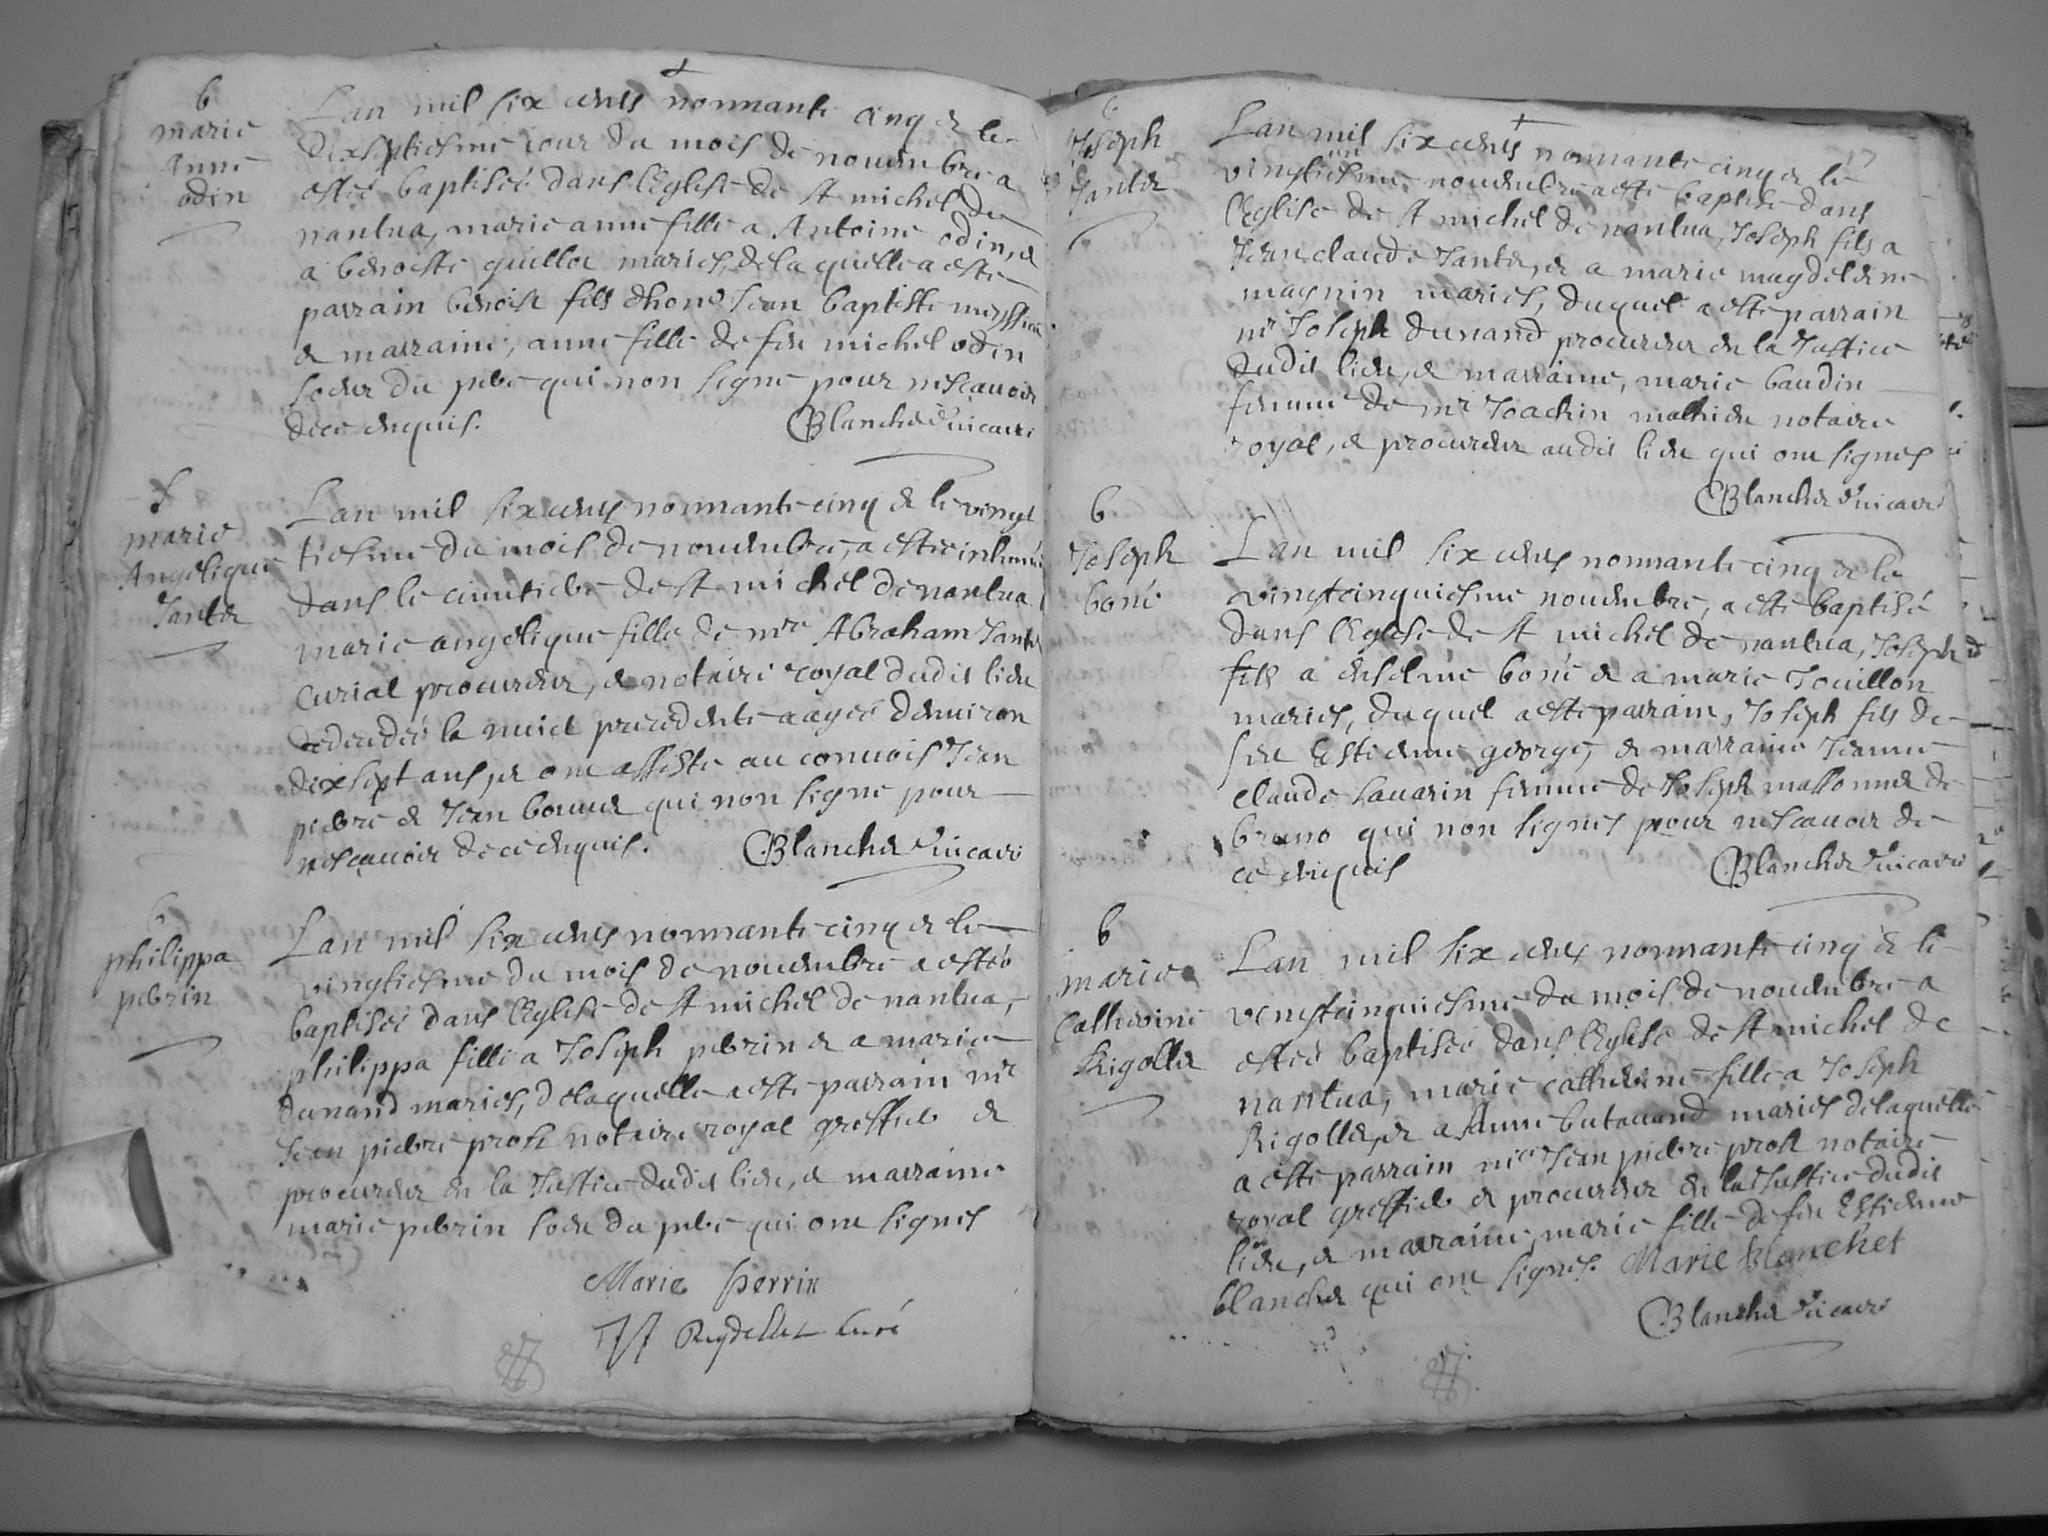 b
marie
Anne
odin
Lan mil six cents nonnante cinq et le
dixseptiesme iour du mois de nouembre a
esteé baptiseé dans leglise de st michel de
nantua, marie anne fille a Antoine odin, et
a benoiste guillot mariés, de la quelle a esté
parrain benoist fils dhone Jean baptiste
et marraine, anne fille de feu michel odin
soeur du pere qui non signe pour nescauoir
de ce enquis. Blanchet vicaire
marie
Angelique
Jantet
Lan mil six cents nonnante cinq et le vingt
tiesme du mois de nouembre, a esté inhumeé
dans le cimetiere de st michel de nantua
marie angelique fille de mre Abraham Jantet
curial procureur, et notaire royal dudit lieu
decedeé la nuict precedente aageé denuiron
dixsept ans, et ont assisté au conuois Jean
pierre et Jean bonnet qui non signé pour
nescauoir de ce enquis. Blanchet vicaire
b
philippa
perrin
Lan mil six cents nonnante cinq et le
vingtiesme du mois de nouembre a esteé
baptiseé dans leglise de st michel de nantua,
philippa fille a Joseph perrin et a marie
dunand mariés, de laquelle a esté parrain mre
Jean pierre prost notaire royal greffier et
procureur en la Justice dudit lieu, et marraine
marie perrin soeur du pere qui ont signés
Marie perrin
Reydellet curé
b
Joseph
Jantet
Lan mil six cents nonnante cinq et le
vingtiesme nouembre a esté baptisé dans
leglise de st michel de nantua, Joseph fils a
Jean claude Jantet, et a marie magdeleine
magnin mariés, duquel a esté parrain
mr Joseph dunand procureur en la Justice
dudit lieu, et marraine, marie baudin
femme de mr Joachin mathieu notaire
royal, et procureur audit lieu qui ont signés
Blanchet vicaire
b
Joseph
boné
Lan mil six cents nonnante cinq et le
vingtcinquiesme nouembre, a esté baptisé
dans leglise de st michel de nantua, Joseph
fils a enselme boné et a marie Touillon
mariés, duquel a esté parrain, Joseph fils de
feu Estienne george, et marraine Jeanne
claude sauarin femme de Joseph massonnet de
bruno qui non signés pour nescauoir de
ce enquis Blanchet vicaire
b
marie
Catherine
Rigollet
Lan mil six cents nonnante cinq et le
vengtcinquiesme du mois de nouembre a
esteé baptiseé dans leglise de st michel de
nantua, marie catherine fille a Joseph
Rigollet, et a Anne butauand mariés de laquelle
a esté parrain mre Jean pierre prost notaire
royal greffier et procureur en la Justice dudit
lieu, et marraine, marie fille de feu Estienne
blanchet qui ont signés. Marie blanchet
Blanchet vicaire